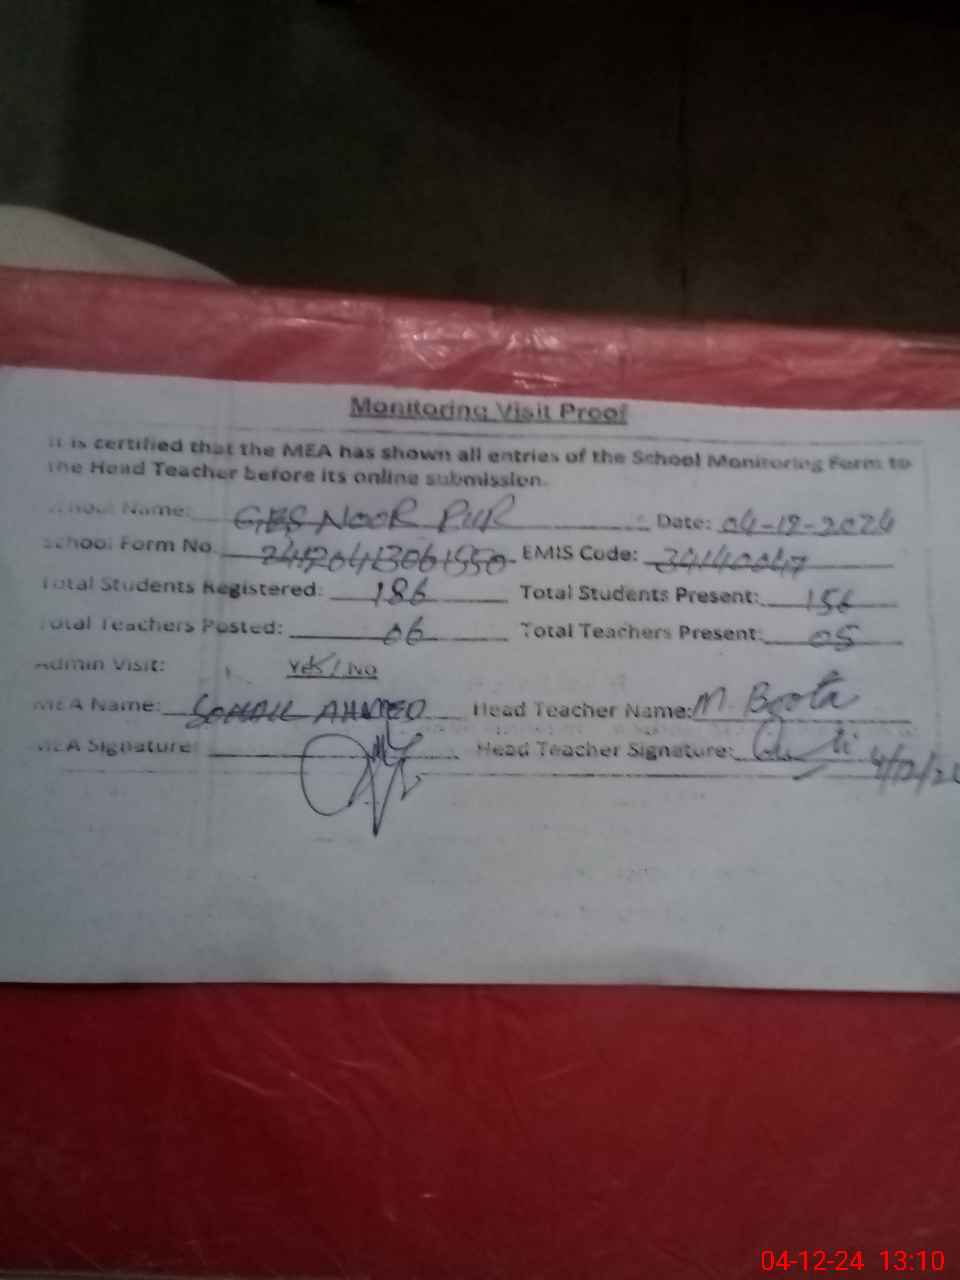 Monitoring Visit Proof
It is certified that the MEA has shown all entries of the School Monitoring Form to
the Head Teacher before its online submission.
School Name: NOOR PUR Date: 04-12-2024
School Form No. EMIS Code:
Total Students Registered: 186 Total Students Present: 156
Total Teachers Posted: 06 Total Teachers Present: 05
Admin Visit: Yes / No
MEA Name: SOHAIL AHMED Head Teacher Name: M. Boota
MEA Signature: Head Teacher Signature:
04-12-24 13:10